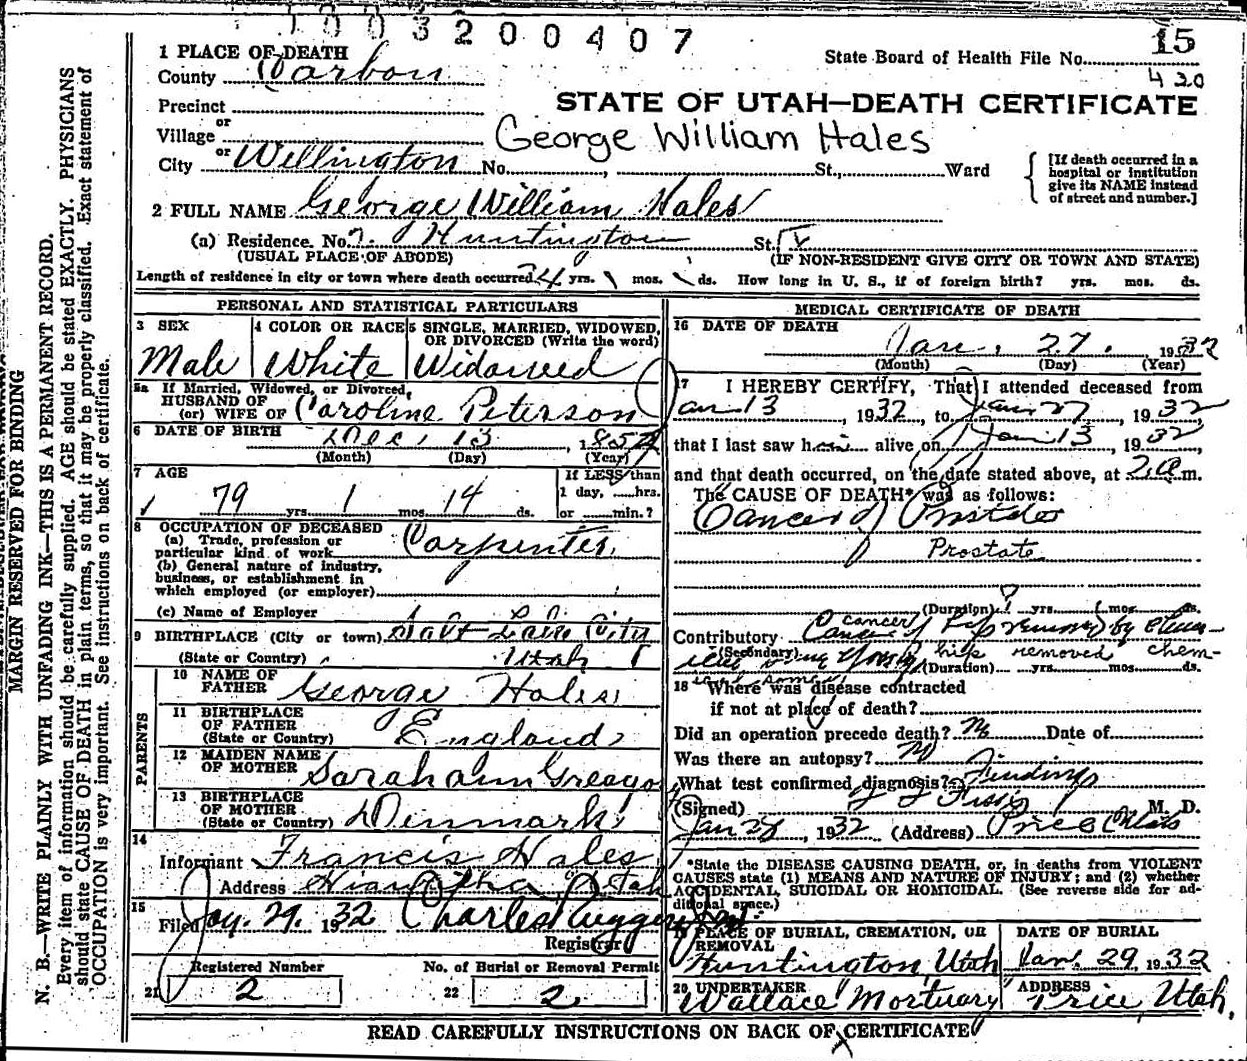 1003200407
15
State Board of Health File No.
420
1 PLACE OF DEATH
County Carbon
STATE OF UTAH—DEATH CERTIFICATE
Precinct
or
Village
George William Hales
City or Wellington No. , St., Ward
[If death occurred in a hospital or institution give its NAME instead of street and number.]
2 FULL NAME George William Hales
(a) Residence. No. Huntington St.
(USUAL PLACE OF ABODE) (IF NON-RESIDENT GIVE CITY OR TOWN AND STATE)
Length of residence in city or town where death occurred yrs. mos. ds. How long in U. S., if of foreign birth? yrs. mos. ds.
PERSONAL AND STATISTICAL PARTICULARS
3 SEX
Male
4 COLOR OR RACE
White
5 SINGLE, MARRIED, WIDOWED, OR DIVORCED (Write the word)
Widowed
5a If Married, Widowed, or Divorced,
HUSBAND OF
(or) WIFE OF Caroline Peterson
6 DATE OF BIRTH Dec. 13, 1852
(Month) (Day) (Year)
7 AGE
79 yrs. 1 mos. 14 ds.
If LESS than
1 day, hrs.
or min.?
8 OCCUPATION OF DECEASED
(a) Trade, profession or
particular kind of work Carpenter
(b) General nature of industry,
business, or establishment in
which employed (or employer)
(c) Name of Employer
9 BIRTHPLACE (City or town) Salt Lake City
(State or Country) Utah
PARENTS
10 NAME OF
FATHER George Hales
11 BIRTHPLACE
OF FATHER
(State or Country) England
12 MAIDEN NAME
OF MOTHER Sarah Ann Gregory
13 BIRTHPLACE
OF MOTHER
(State or Country) Denmark
14
Informant Francis Hales
Address Hiawatha Utah
15
Filed Jan. 29. 1932 Charles
Registrar
Registered Number
21 2
No. of Burial or Removal Permit
22 2
MEDICAL CERTIFICATE OF DEATH
16 DATE OF DEATH
Jan. 27. 1932
(Month) (Day) (Year)
17 I HEREBY CERTIFY, That I attended deceased from
Jan 13, 1932, to Jan 27, 1932
that I last saw him alive on Jan 13, 1932
and that death occurred, on the date stated above, at 2 a.m.
The CAUSE OF DEATH* was as follows:
Cancer of Prostate
Prostate
(Duration) yrs. mos. ds.
cancer
Contributory Cancer of lip removed by
(Secondary) lip removed chem-
(Duration) yrs. mos. ds.
18 Where was disease contracted
if not at place of death?
Did an operation precede death? No Date of
Was there an autopsy? No
What test confirmed diagnosis? Findings
(Signed) M. D.
Jan 28, 1932 (Address) Price Utah
*State the DISEASE CAUSING DEATH, or, in deaths from VIOLENT
CAUSES state (1) MEANS AND NATURE OF INJURY; and (2) whether
ACCIDENTAL, SUICIDAL OR HOMICIDAL. (See reverse side for ad-
ditional space.)
19 PLACE OF BURIAL, CREMATION, OR
REMOVAL
Huntington Utah
DATE OF BURIAL
Jan. 29, 1932
20 UNDERTAKER
Wallace Mortuary
ADDRESS
Price, Utah.
READ CAREFULLY INSTRUCTIONS ON BACK OF CERTIFICATE
MARGIN RESERVED FOR BINDING
N. B.—WRITE PLAINLY WITH UNFADING INK—THIS IS A PERMANENT RECORD.
Every item of information should be carefully supplied. AGE should be stated EXACTLY. PHYSICIANS
should state CAUSE OF DEATH in plain terms, so that it may be properly classified. Exact statement of
OCCUPATION is very important. See instructions on back of certificate.